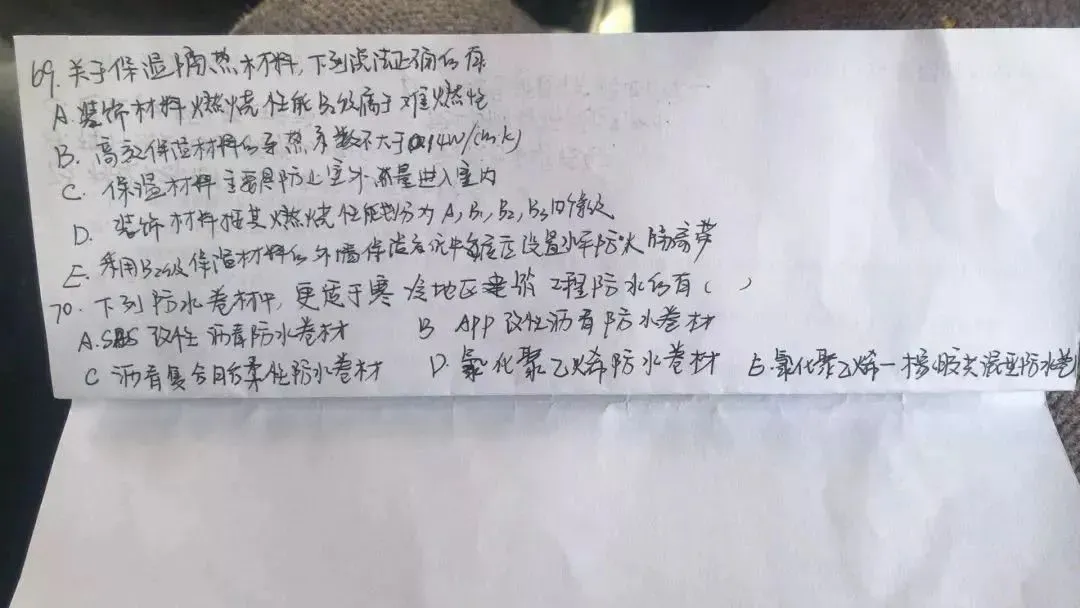 69.关于保温隔热材料,下列说法正确的有
A.装饰材料燃烧性能B₂级属于难燃性
B.高效保温材料的导热系数不大于0.14W/(m.k)
C.保温材料主要是防止室外热量进入室内
D.装饰材料按其燃烧性能划分为A,B₁,B₂,B₃四个等级
E.采用B₂级保温材料的外墙保温系统中每层应设置水平防火隔离带
70.下列防水卷材中,更适于寒冷地区建筑工程防水的有( )
A.SBS改性沥青防水卷材 B APP改性沥青防水卷材
C 沥青复合胎柔性防水卷材 D.氯化聚乙烯防水卷材 E.氯化聚乙烯一橡胶共混型防水卷